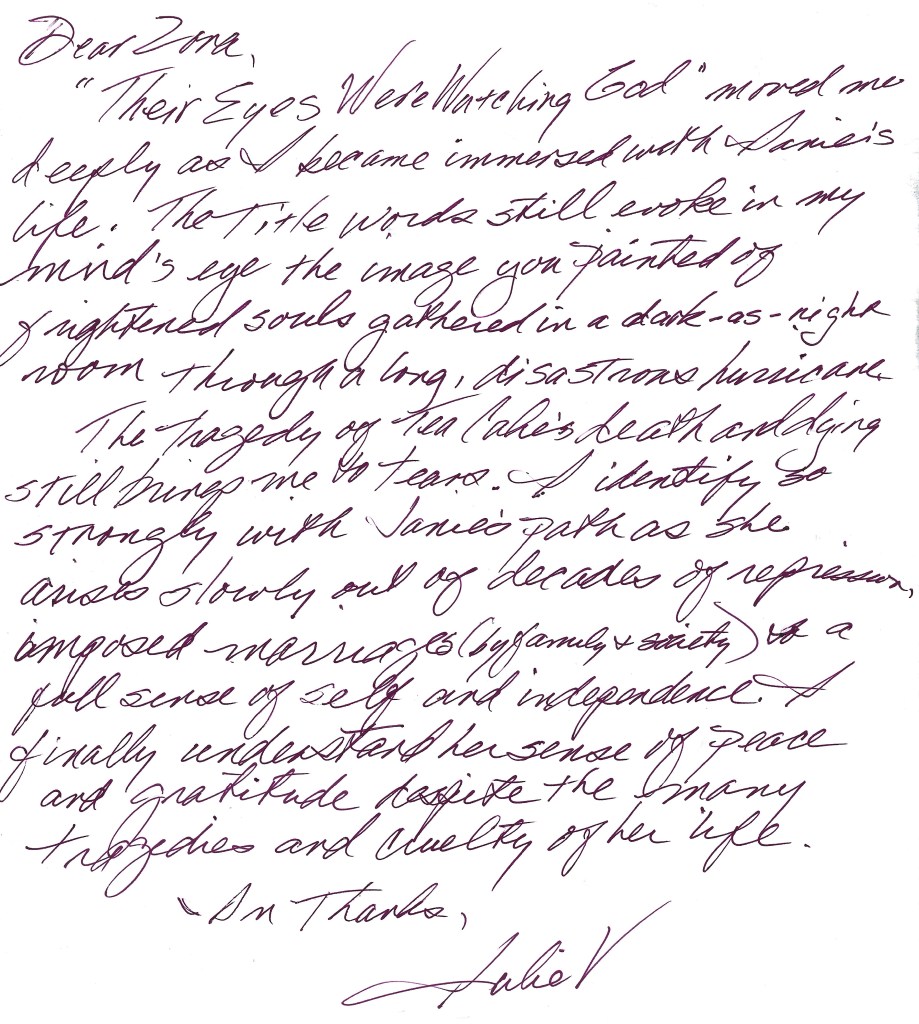 Dear Zora,
"Their Eyes Were Watching God" moved me
deeply as I became immersed with Janie's
life. The Title words still evoke in my
mind's eye the image you painted of
frightened souls gathered in a dark-as-night
room through a long, disastrous hurricane.
The tragedy of Tea Cake's death and dying
still brings me to tears. I identify so
strongly with Janie's path as she
arises slowly out of decades of repression,
imposed marriages (by family + society) to a
full sense of self and independence. I
finally understand her sense of peace
and gratitude despite the many
tragedies and cruelty of her life.
In Thanks,
Julie V